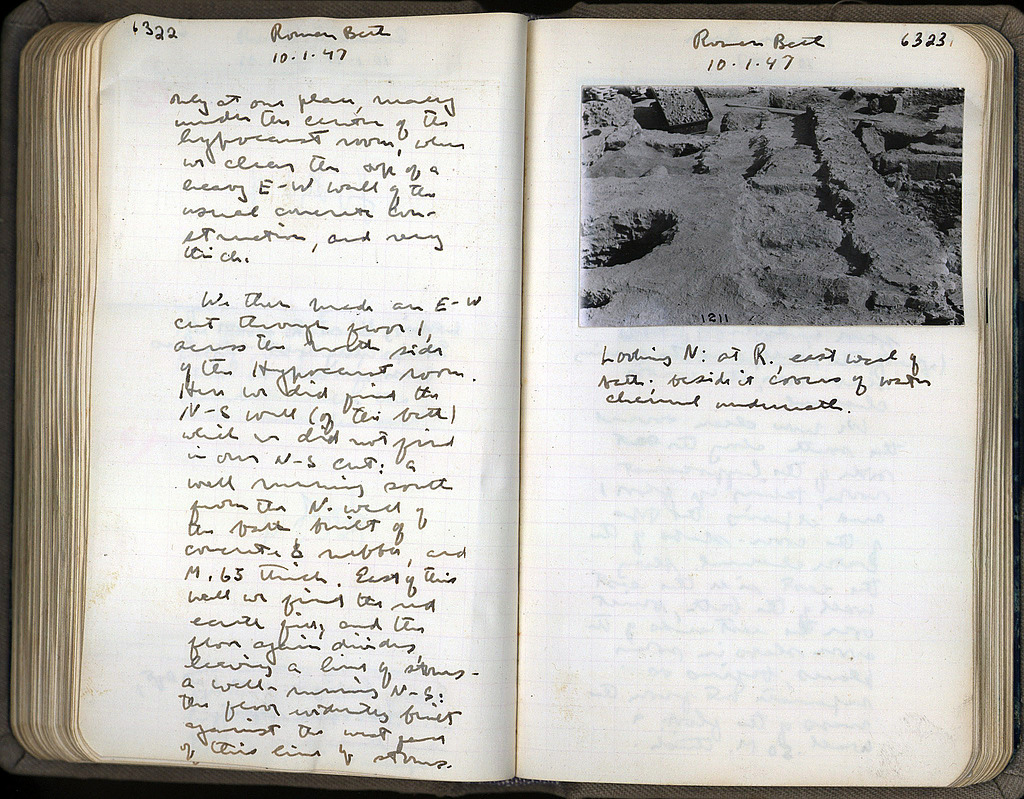 6322
Roman Bath
10·1·47
only at one place, nearly
under the centre of the
hypocaust room, when
we clear the top of a
heavy E-W wall of the
usual concrete con-
struction, and very
thick.
We then made an E-W
cut through floor 1,
across the north side
of the Hypocaust room.
Here we did find the
N-S wall (of the bath)
which we did not find
in our N-S cut: a
wall running south
from the N. wall of
the bath built of
concrete & rubble, and
M. .63 thick. East of this
wall we find the red
earth fill, and the
floor again divides
leaving a line of stones -
a wall - running N-S:
the floor evidently built
against the west face
of this line of stones.
Roman Bath
6323
10·1·47
1211
Looking N: at R., east wall of
bath; beside it covers of water
channel underneath.